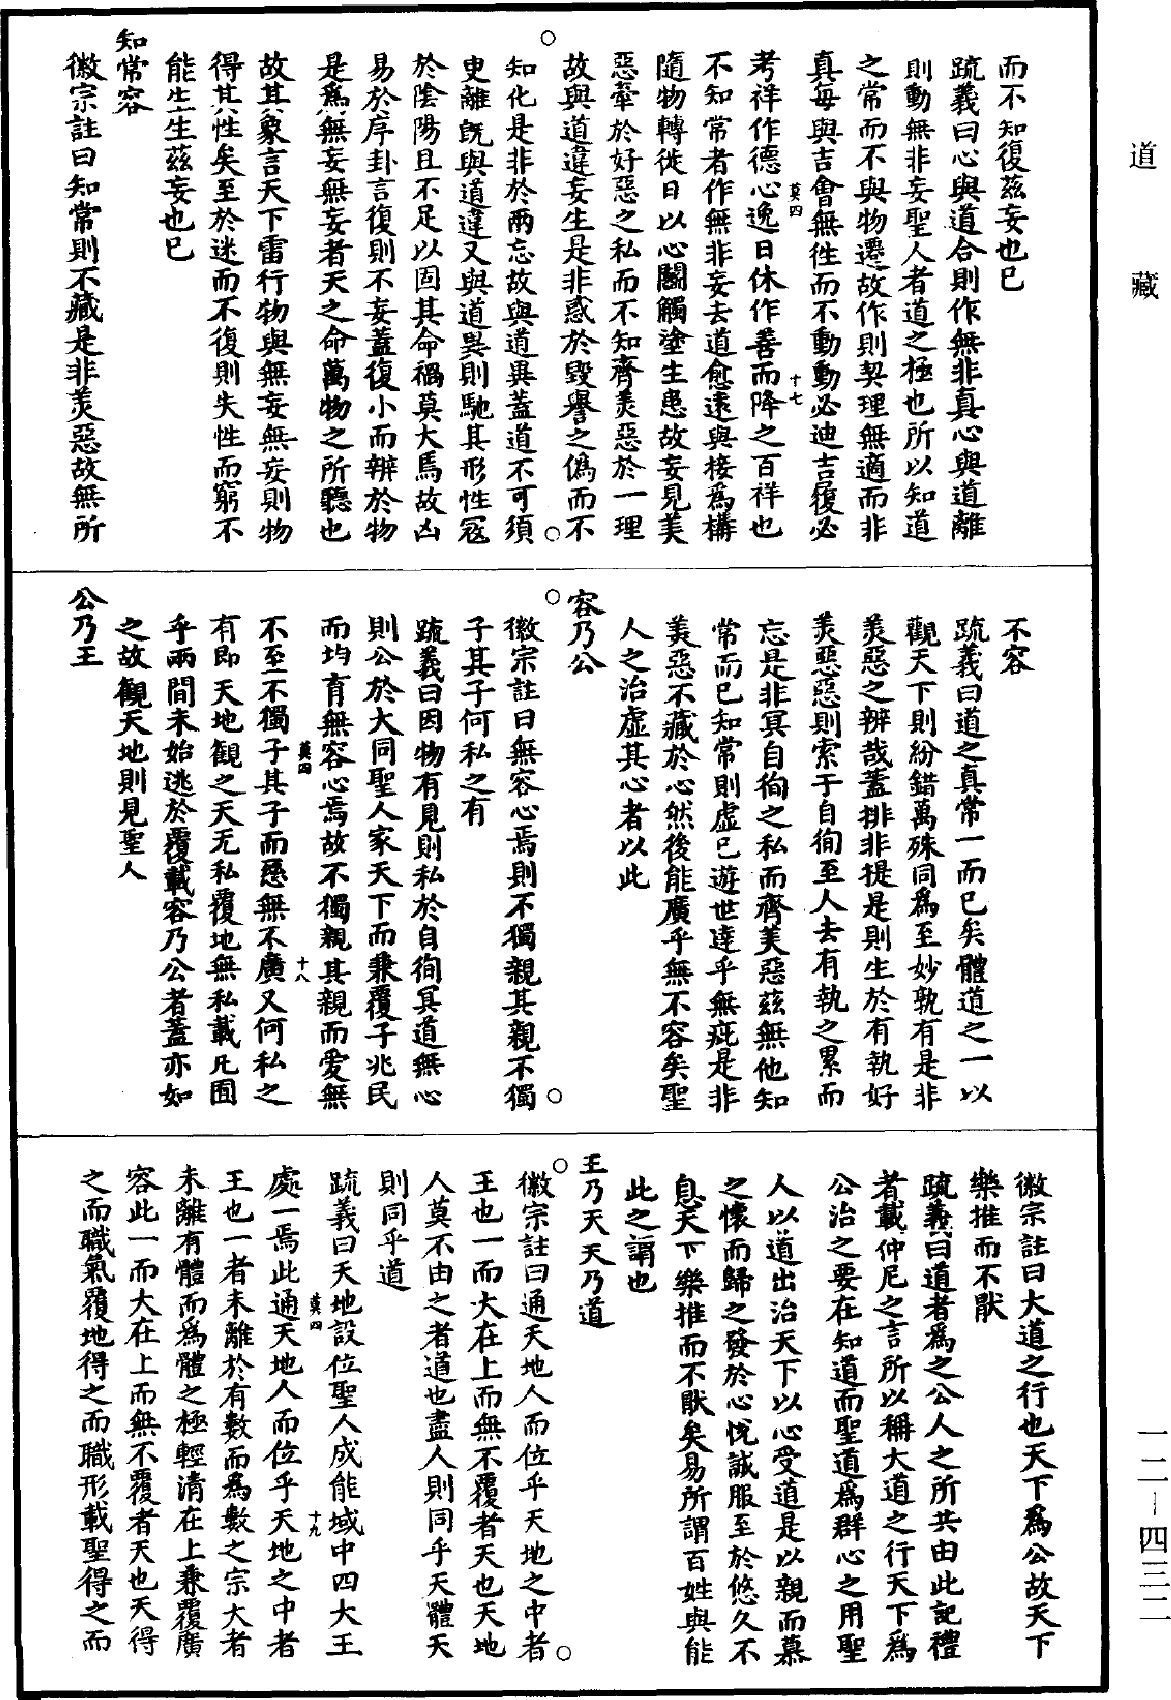 道藏
一二—四三二
而不知復茲妄也已
疏義曰心與道合則作無非真心與道離
則動無非妄聖人者道之極也所以知道
之常而不與物遷故作則契理無適而非
真每與吉會無徃而不動動必迪吉履必
考祥作德心逸日休作善而降之百祥也
莫四
十七
不知常者作無非妄去道愈遠與接爲構
隨物轉徙日以心鬬觸塗生患故妄見美
惡牽於好惡之私而不知齊美惡於一理
故與道違妄生是非惑於毀譽之僞而不
知化是非於兩忘故與道異蓋道不可須
臾離旣與道違又與道異則馳其形性寇
於陰陽且不足以固其命禍莫大焉故凶
易於序卦言復則不妄蓋復小而辨於物
是爲無妄無妄者天之命萬物之所聽也
故其象言天下雷行物與無妄無妄則物
得其性矣至於迷而不復則失性而窮不
能生生茲妄也已
知常容
徽宗註曰知常則不藏是非美惡故無所
不容
疏義曰道之真常一而已矣體道之一以
觀天下則紛錯萬殊同爲至妙孰有是非
美惡之辨哉蓋排非提是則生於有執好
美惡惡則索于自徇至人去有執之累而
忘是非冥自徇之私而齊美惡茲無他知
常而已知常則虛己遊世達乎無疵是非
美惡不藏於心然後能廣乎無不容矣聖
人之治虛其心者以此
容乃公
徽宗註曰無容心焉則不獨親其親不獨
子其子何私之有
疏義曰因物有見則私於自徇冥道無心
則公於大同聖人家天下而兼覆子兆民
而均育無容心焉故不獨親其親而愛無
莫四
十八
不至不獨子其子而慈無不廣又何私之
有即天地觀之天无私覆地無私載凡囿
乎兩間未始逃於覆載容乃公者蓋亦如
之故觀天地則見聖人
公乃王
徽宗註曰大道之行也天下爲公故天下
樂推而不厭
疏義曰道者爲之公人之所共由此記禮
者載仲尼之言所以稱大道之行天下爲
公治之要在知道而聖道爲群心之用聖
人以道出治天下以心受道是以親而慕
之懷而歸之發於心悅誠服至於悠久不
息天下樂推而不厭矣易所謂百姓與能
此之謂也
王乃天天乃道
徽宗註曰通天地人而位乎天地之中者
王也一而大在上而無不覆者天也天地
人莫不由之者道也盡人則同乎天體天
則同乎道
疏義曰天地設位聖人成能域中四大王
莫四
十九
處一焉此通天地人而位乎天地之中者
王也一者未離於有數而爲數之宗大者
未離有體而爲體之極輕清在上兼覆廣
容此一而大在上而無不覆者天也天得
之而職氣覆地得之而職形載聖得之而